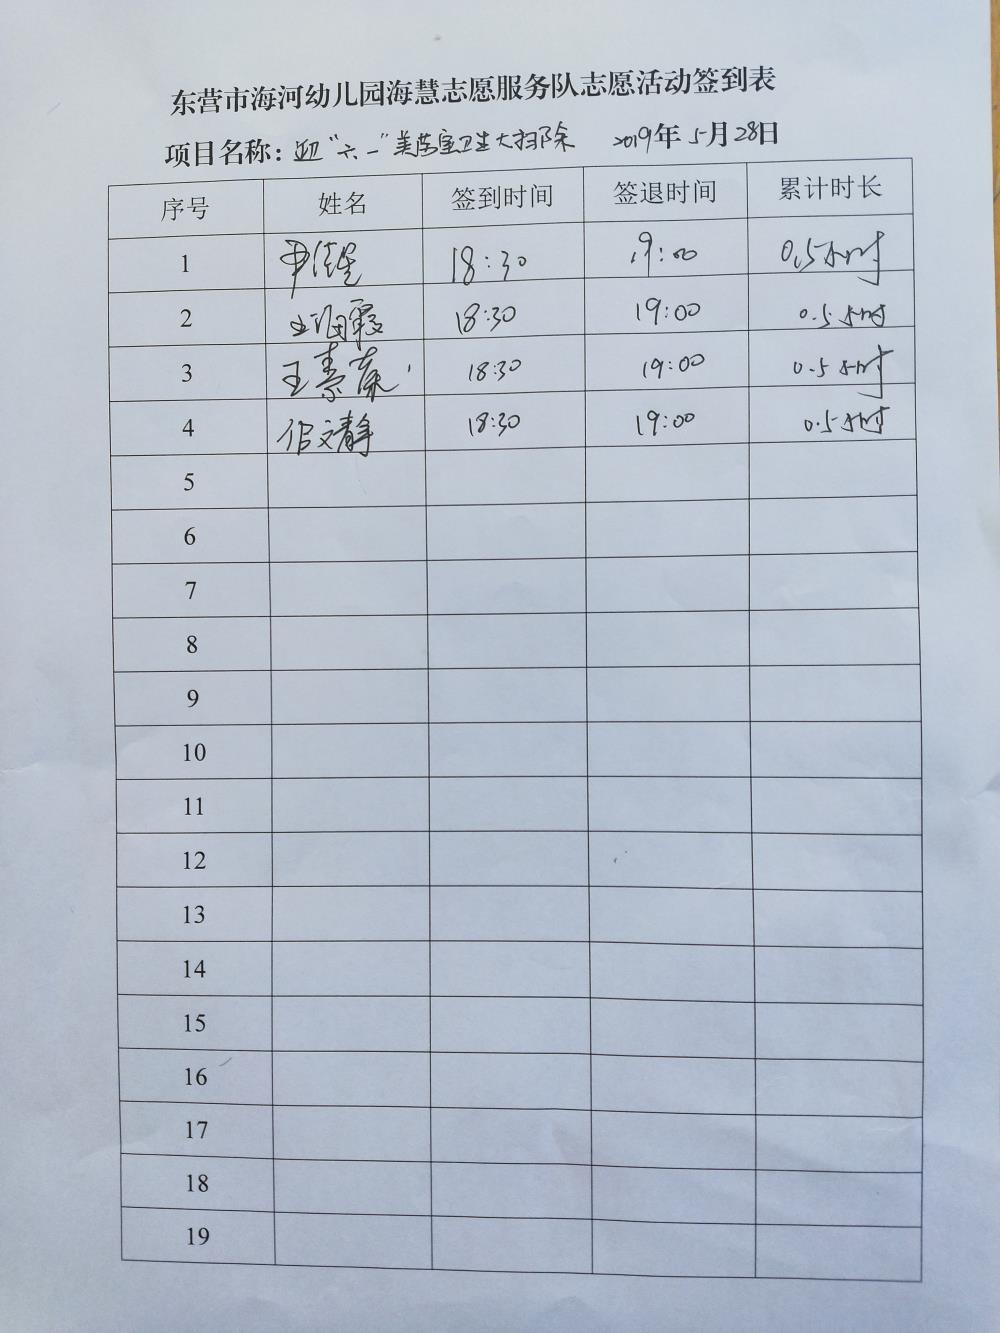 东营市海河幼儿园海慧志愿服务队志愿活动签到表
项目名称：迎“六一”美劳室卫生大扫除 2019年5月28日
序号 姓名 签到时间 签退时间 累计时长
1 18:30 19:00 0.5小时
2 王海霞 18:30 19:00 0.5小时
3 王素 18:30 19:00 0.5小时
4 文静 18:30 19:00 0.5小时
5
6
7
8
9
10
11
12
13
14
15
16
17
18
19